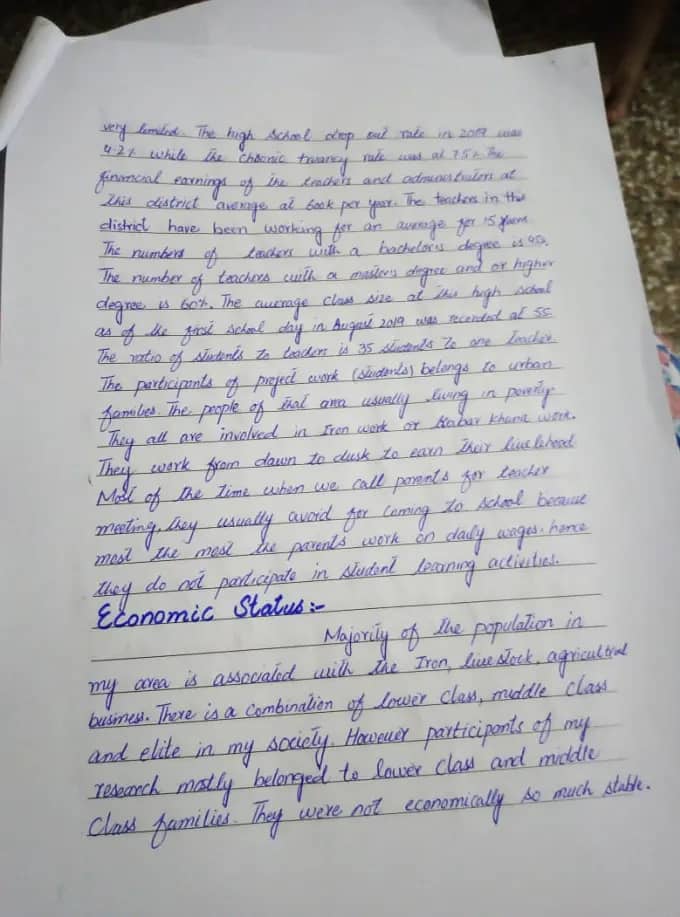 very limited. The high school drop out rate in 2019 was
4.2% while the chronic truancy rate was at 75%. The
financial earnings of the teachers and administrators at
this district average at 600k per year. The teachers in this
district have been working for an average for 15 years
The numbers of teachers with a bachelor's degree is
The number of teachers with a masters degree and or higher
degree is 60%. The average class size at this high school
as of the first school day in August 2019 was recorded at 55.
The ratio of students to teachers is 35 students to one teacher.
The participants of project work (students) belongs to urban
families. The people of that area usually living in poverty.
They all are involved in Iron work or Kabar khana work.
They work from dawn to dusk to earn their livelehood
Most of the time when we call parents for teacher
meeting, they usually avoid for coming to school because
most the most the parents work on daily wages. hence
they do not participate in student learning activities.
Economic Status:-
Majority of the population in
my area is associated with the Iron, live stock, agricultural
business. There is a combination of lower class, middle class
and elite in my society. However participants of my
research mostly belonged to lower class and middle
class families. They were not economically so much stable.